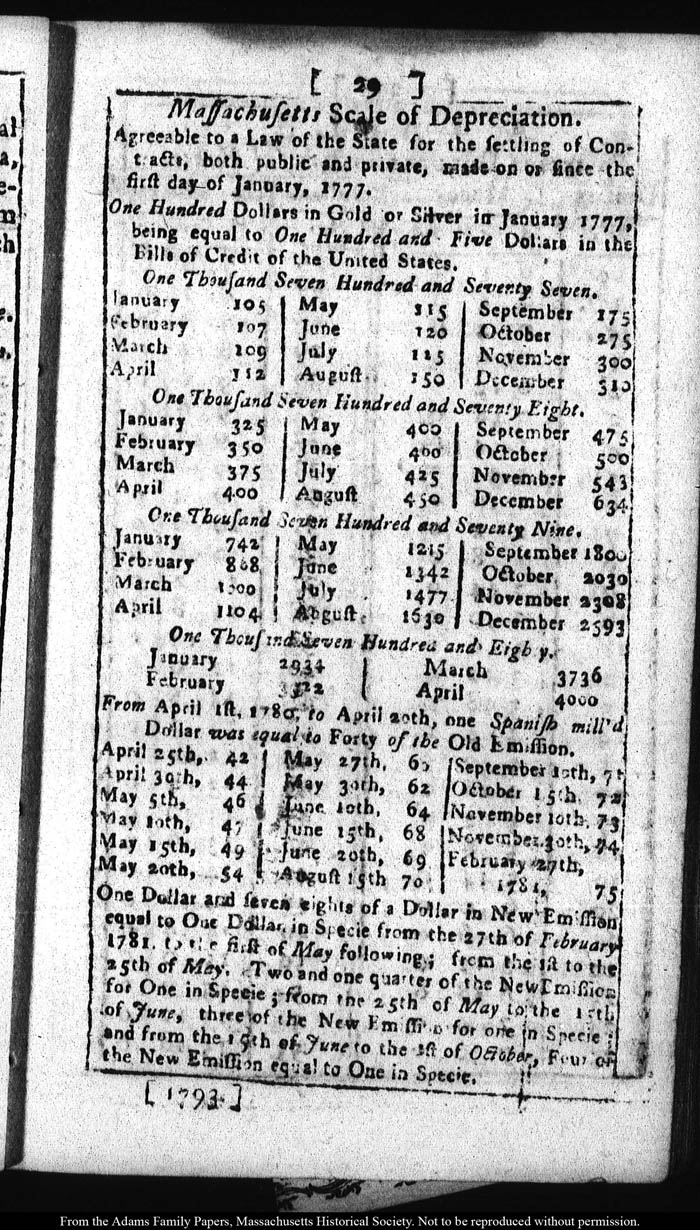 [ 29 ]
Maſſachuſetts Scale of Depreciation.
Agreeable to a Law of the State for the ſettling of Con-
tracts, both public and private, made on or ſince the
firſt day of January, 1777.
One Hundred Dollars in Gold or Silver in January 1777,
being equal to One Hundred and Five Dollars in the
Bills of Credit of the United States.
One Thouſand Seven Hundred and Seventy Seven.
January 105 May 115 September 175
February 107 June 120 October 275
March 109 July 125 November 300
April 112 Auguſt 150 December 310
One Thouſand Seven Hundred and Seventy Eight.
January 325 May 400 September 475
February 350 June 400 October 500
March 375 July 425 November 543
April 400 Auguſt 450 December 634
One Thouſand Seven Hundred and Seventy Nine.
January 742 May 1215 September 1800
February 868 June 1342 October 2030
March 1000 July 1477 November 2308
April 1104 Auguſt 1630 December 2593
One Thouſand Seven Hundred and Eighty.
January 2934 March 3736
February 3322 April 4000
From April 1ſt, 1780, to April 20th, one Spaniſh mill'd
Dollar was equal to Forty of the Old Emiſſion.
April 25th, 42 May 27th, 60 September 10th, 71
April 30th, 44 May 30th, 62 October 15th 72
May 5th, 46 June 10th, 64 November 10th, 73
May 10th, 47 June 15th, 68 November 30th, 74
May 15th, 49 June 20th, 69 February 27th,
May 20th, 54 Auguſt 15th 70 1781, 75
One Dollar and ſeven eights of a Dollar in New Emiſſion
equal to One Dollar in Specie from the 27th of February
1781, to the firſt of May following; from the 1ſt to the
25th of May, Two and one quarter of the New Emiſſion
for One in Specie; from the 25th of May to the 15th
of June, three of the New Emiſſion for one in Specie;
and from the 15th of June to the 1ſt of October, Four of
the New Emiſſion equal to One in Specie.
[1793.]
From the Adams Family Papers, Massachusetts Historical Society. Not to be reproduced without permission.